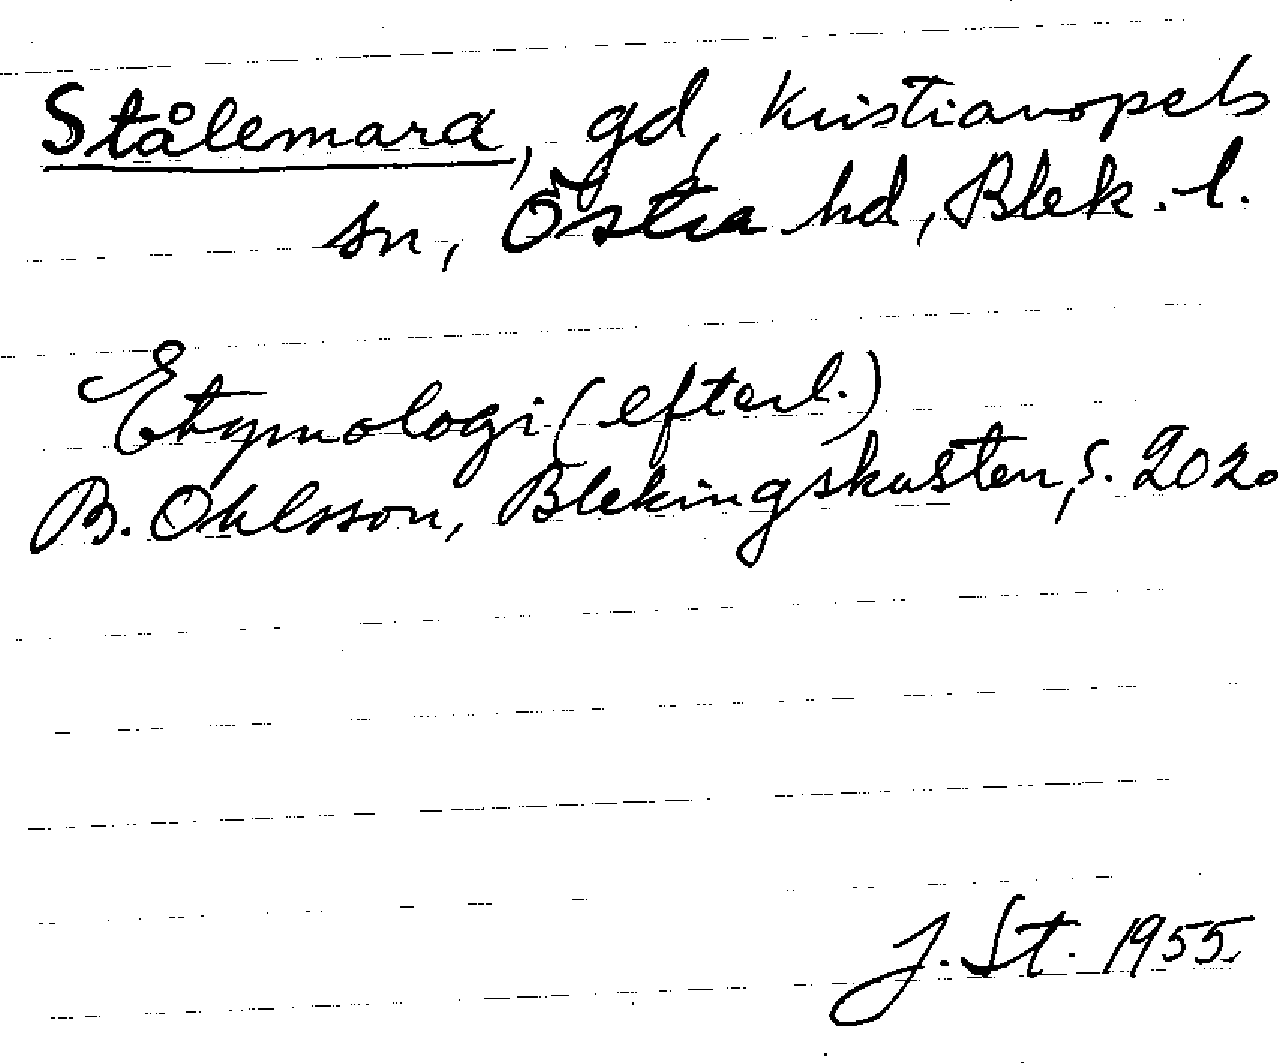 Stålemara, gd, Kristianopels
sn, Östra hd, Blek. l.
Etymologi (efterl.)
B. Ohlsson, Blekingskusten, s. 202.
J. St. 1955